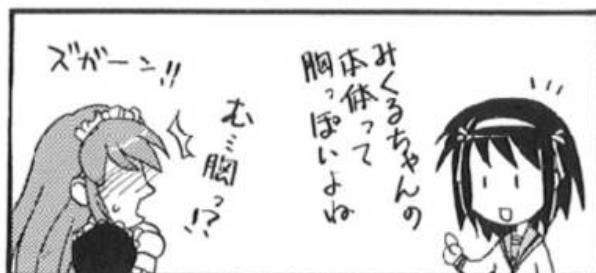 みくるちゃんの
本体って
胸っぽいよね
む…胸っ!?
ズガーン!!